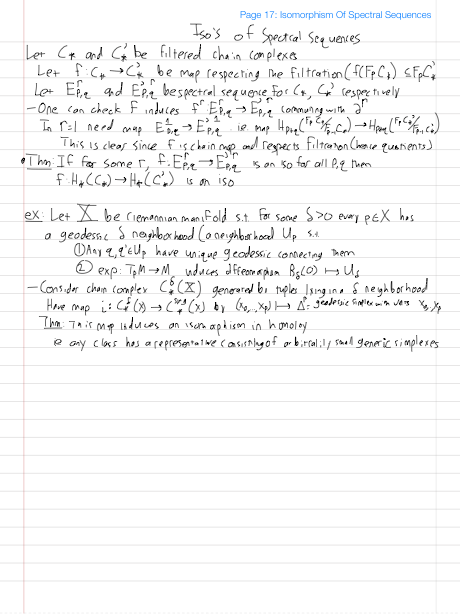 Page 17: Isomorphism Of Spectral Sequences
Iso's of Spectral Sequences
Let C_* and C_*' be filtered chain complexes
Let f: C_* → C_*' be map respecting the filtration (f(F_pC_*) ⊆ F_pC_*')
Let E^r_{p,q} and E'^r_{p,q} be spectral sequence for C_*, C_*' respectively
- One can check f induces f^r: E^r_{p,q} → E'^r_{p,q} commuting with ∂^r
In r=1 need map E^1_{p,q} → E'^1_{p,q} ie map H_{p+q}(F_pC_*/F_{p-1}C_*) → H_{p+q}(F_pC_*'/F_{p-1}C_*')
This is clear since f is chain map and respects filtration (hence quotients)
• Thm: If for some r, f: E^r_{p,q} → E'^r_{p,q} is an iso for all p,q then
f: H_*(C_*) → H_*(C_*') is an iso
ex: Let X be riemannian manifold s.t. for some δ>0 every p∈X has
a geodesic δ neighborhood (a neighborhood U_p s.t.
① Any q,q'∈U_p have unique geodesic connecting them
② exp: T_pM → M induces diffeomorphism B_δ(0) ↦ U_δ
- Consider chain complex C^δ_*(X) generated by tuples lying in a δ neighborhood
Have map i: C^δ_*(X) → C^sing_*(X) by (x_0,...,x_p) ↦ Δ^p: geodesic simplex with verts x_0,..,x_p
Thm: This map induces an isomorphism in homology
ie any class has a representative consisting of arbitrarily small generic simplexes